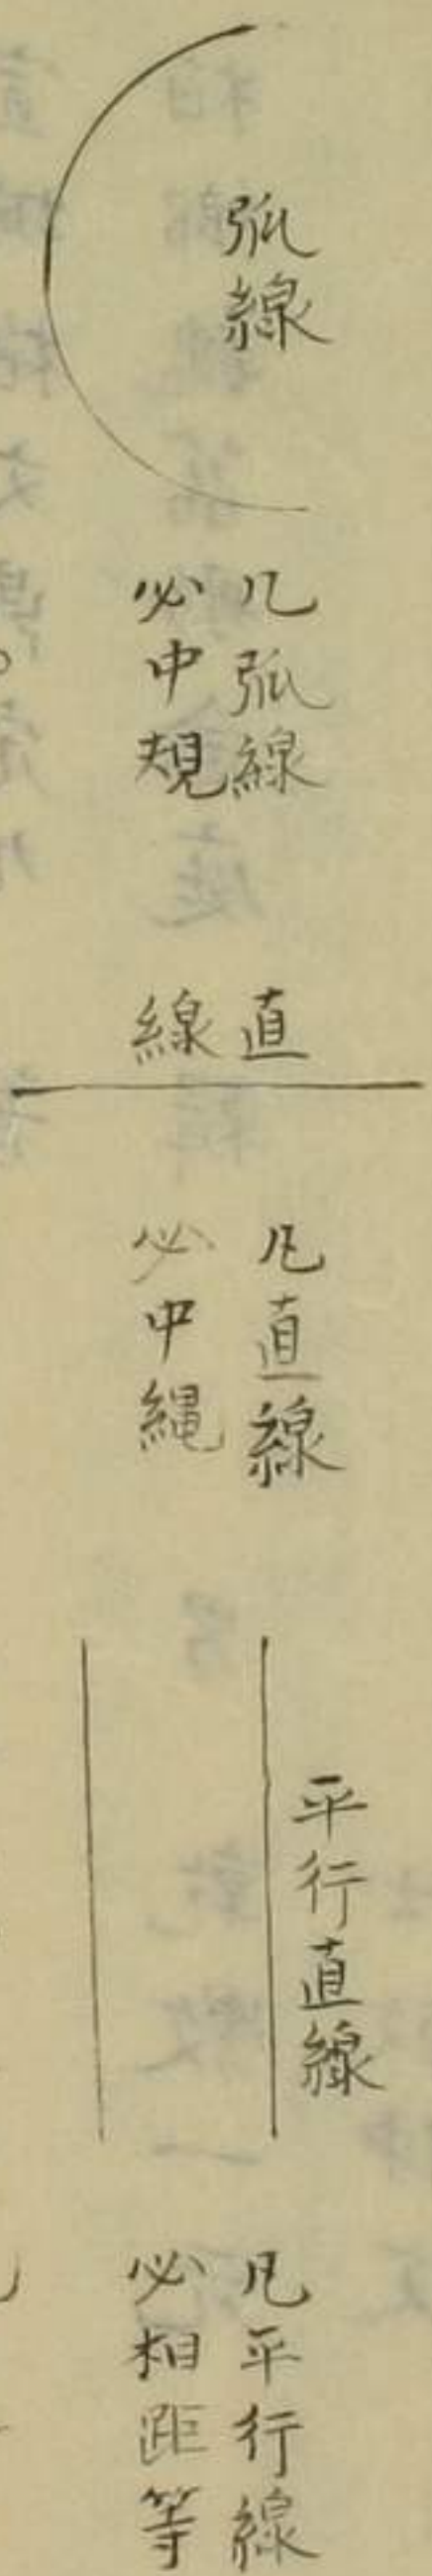 弧線
凡弧線
必中規
直線
凡直線
必中縄
平行直線
凡平行線
必相距等